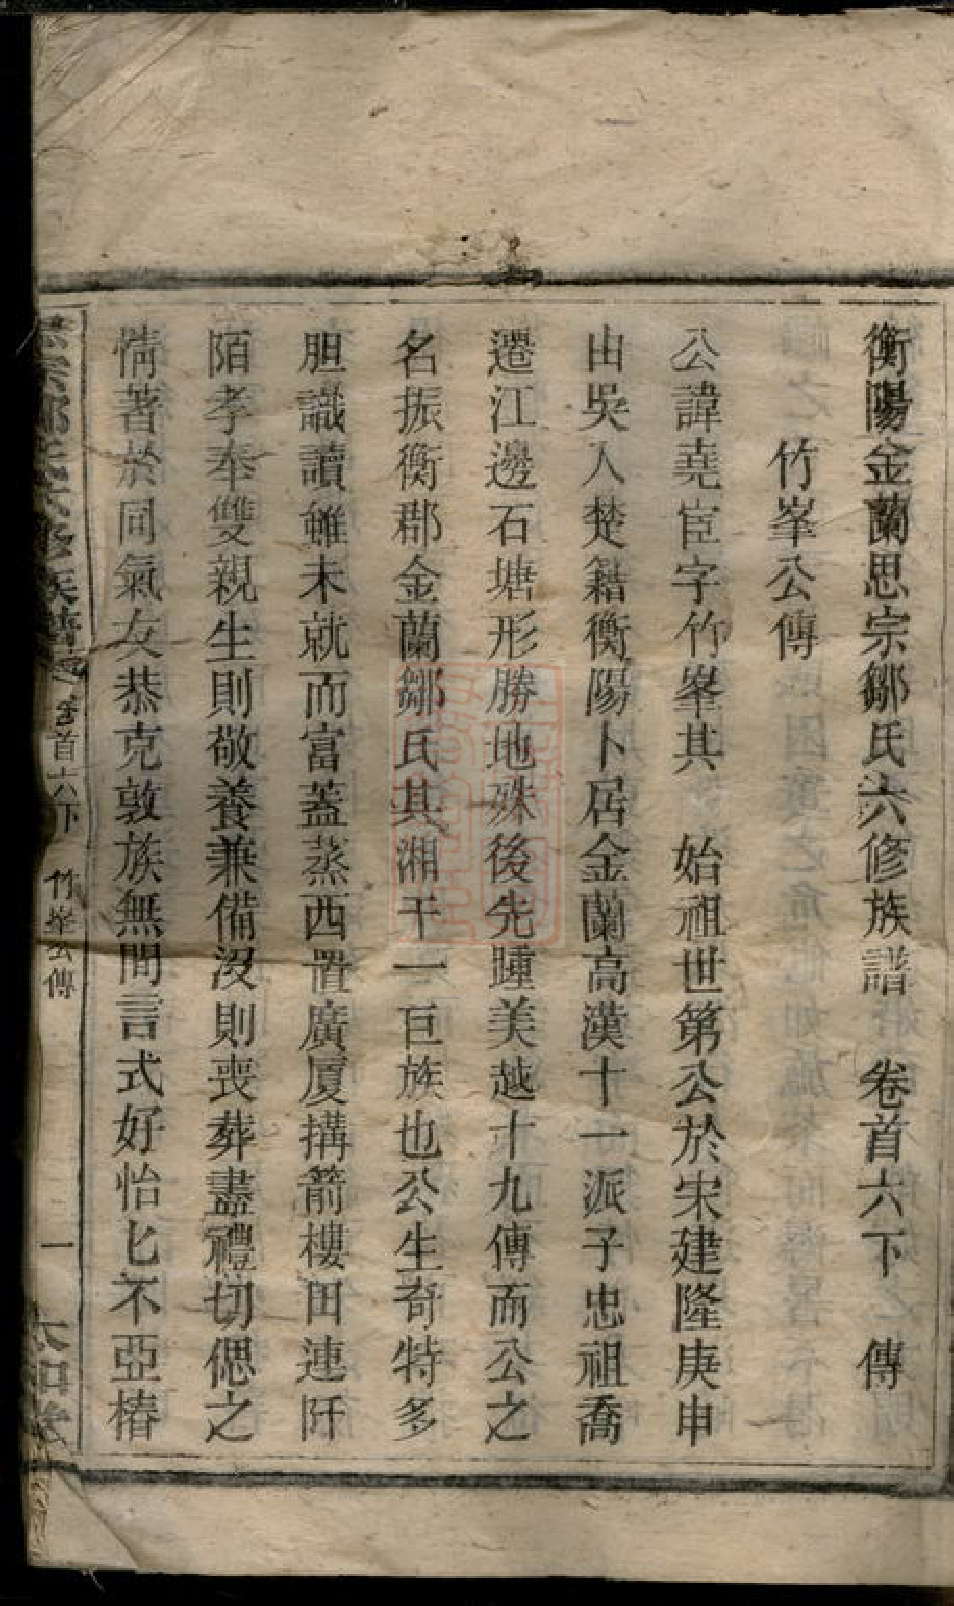 衡陽金蘭思宗鄒氏六修族譜　卷首六下　傳
竹峯公傳
公諱堯宦字竹峯其　始祖世第公於宋建隆庚申
由吳入楚籍衡陽卜居金蘭高漢十一派子忠祖喬
遷江邊石塘形勝地殊後先踵美越十九傳而公之
名振衡郡金蘭鄒氏其湘干一巨族也公生奇特多
胆識讀雖未就而富蓋蒸西置廣厦搆箭樓田連阡
陌孝奉雙親生則敬養兼備沒則喪葬盡禮切偲之
情著於同氣友恭克敦族無間言式好怡匕不亞椿
思宗鄒氏六修族譜 卷首六下 竹峯公傳 一 太和堂